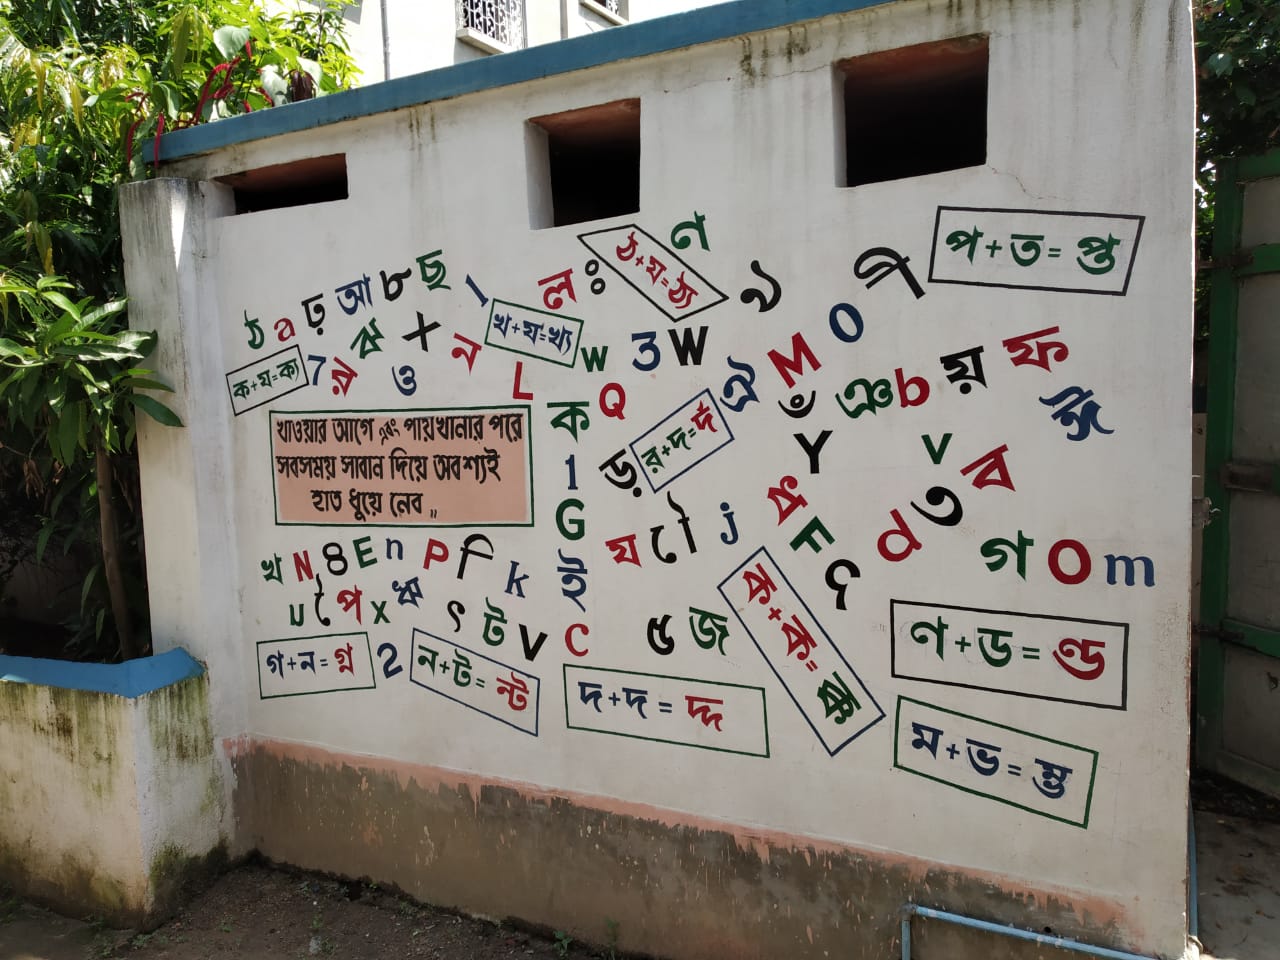 প + ত = প্ত
ণ
ঠ + য = ঠ্য
ল ঃ
৯
আ ৮ ছ
1
ঠ a ঢ়
খ + য = খ্য
ঝ x ন
w 3 W
M 0
ক + য = ক্য
7 র ও
L
ক Q
ঐ
ঁ ঞ b য় ফ
ঈ
র + দ = র্দ
খাওয়ার আগে এবং পায়খানার পরে
সবসময় সাবান দিয়ে অবশ্যই
হাত ধুয়ে নেব ,,
1
ড়
Y v ব
G
য ো j
F d ৩
গ O m
খ N 8 E n P ি k ই
u প x ৎ ট v C
৫ জ
ক + ক = ক্ক
ণ + ড = ণ্ড
গ + ন = গ্ন
2
ন + ট = ন্ট
দ + দ = দ্দ
ম + ভ = ম্ভ